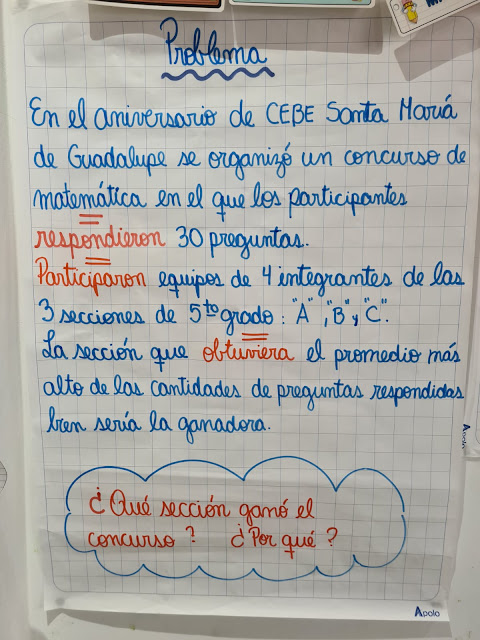 Problema
En el aniversario de CEBE Santa María
de Guadalupe se organizó un concurso de
matemática en el que los participantes
respondieron 30 preguntas.
Participaron equipos de 4 integrantes de las
3 secciones de 5to grado: "A", "B" y "C".
La sección que obtuviera el promedio más
alto de las cantidades de preguntas respondidas
bien sería la ganadora.
¿Qué sección ganó el
concurso? ¿Por qué?
Apolo
Apolo